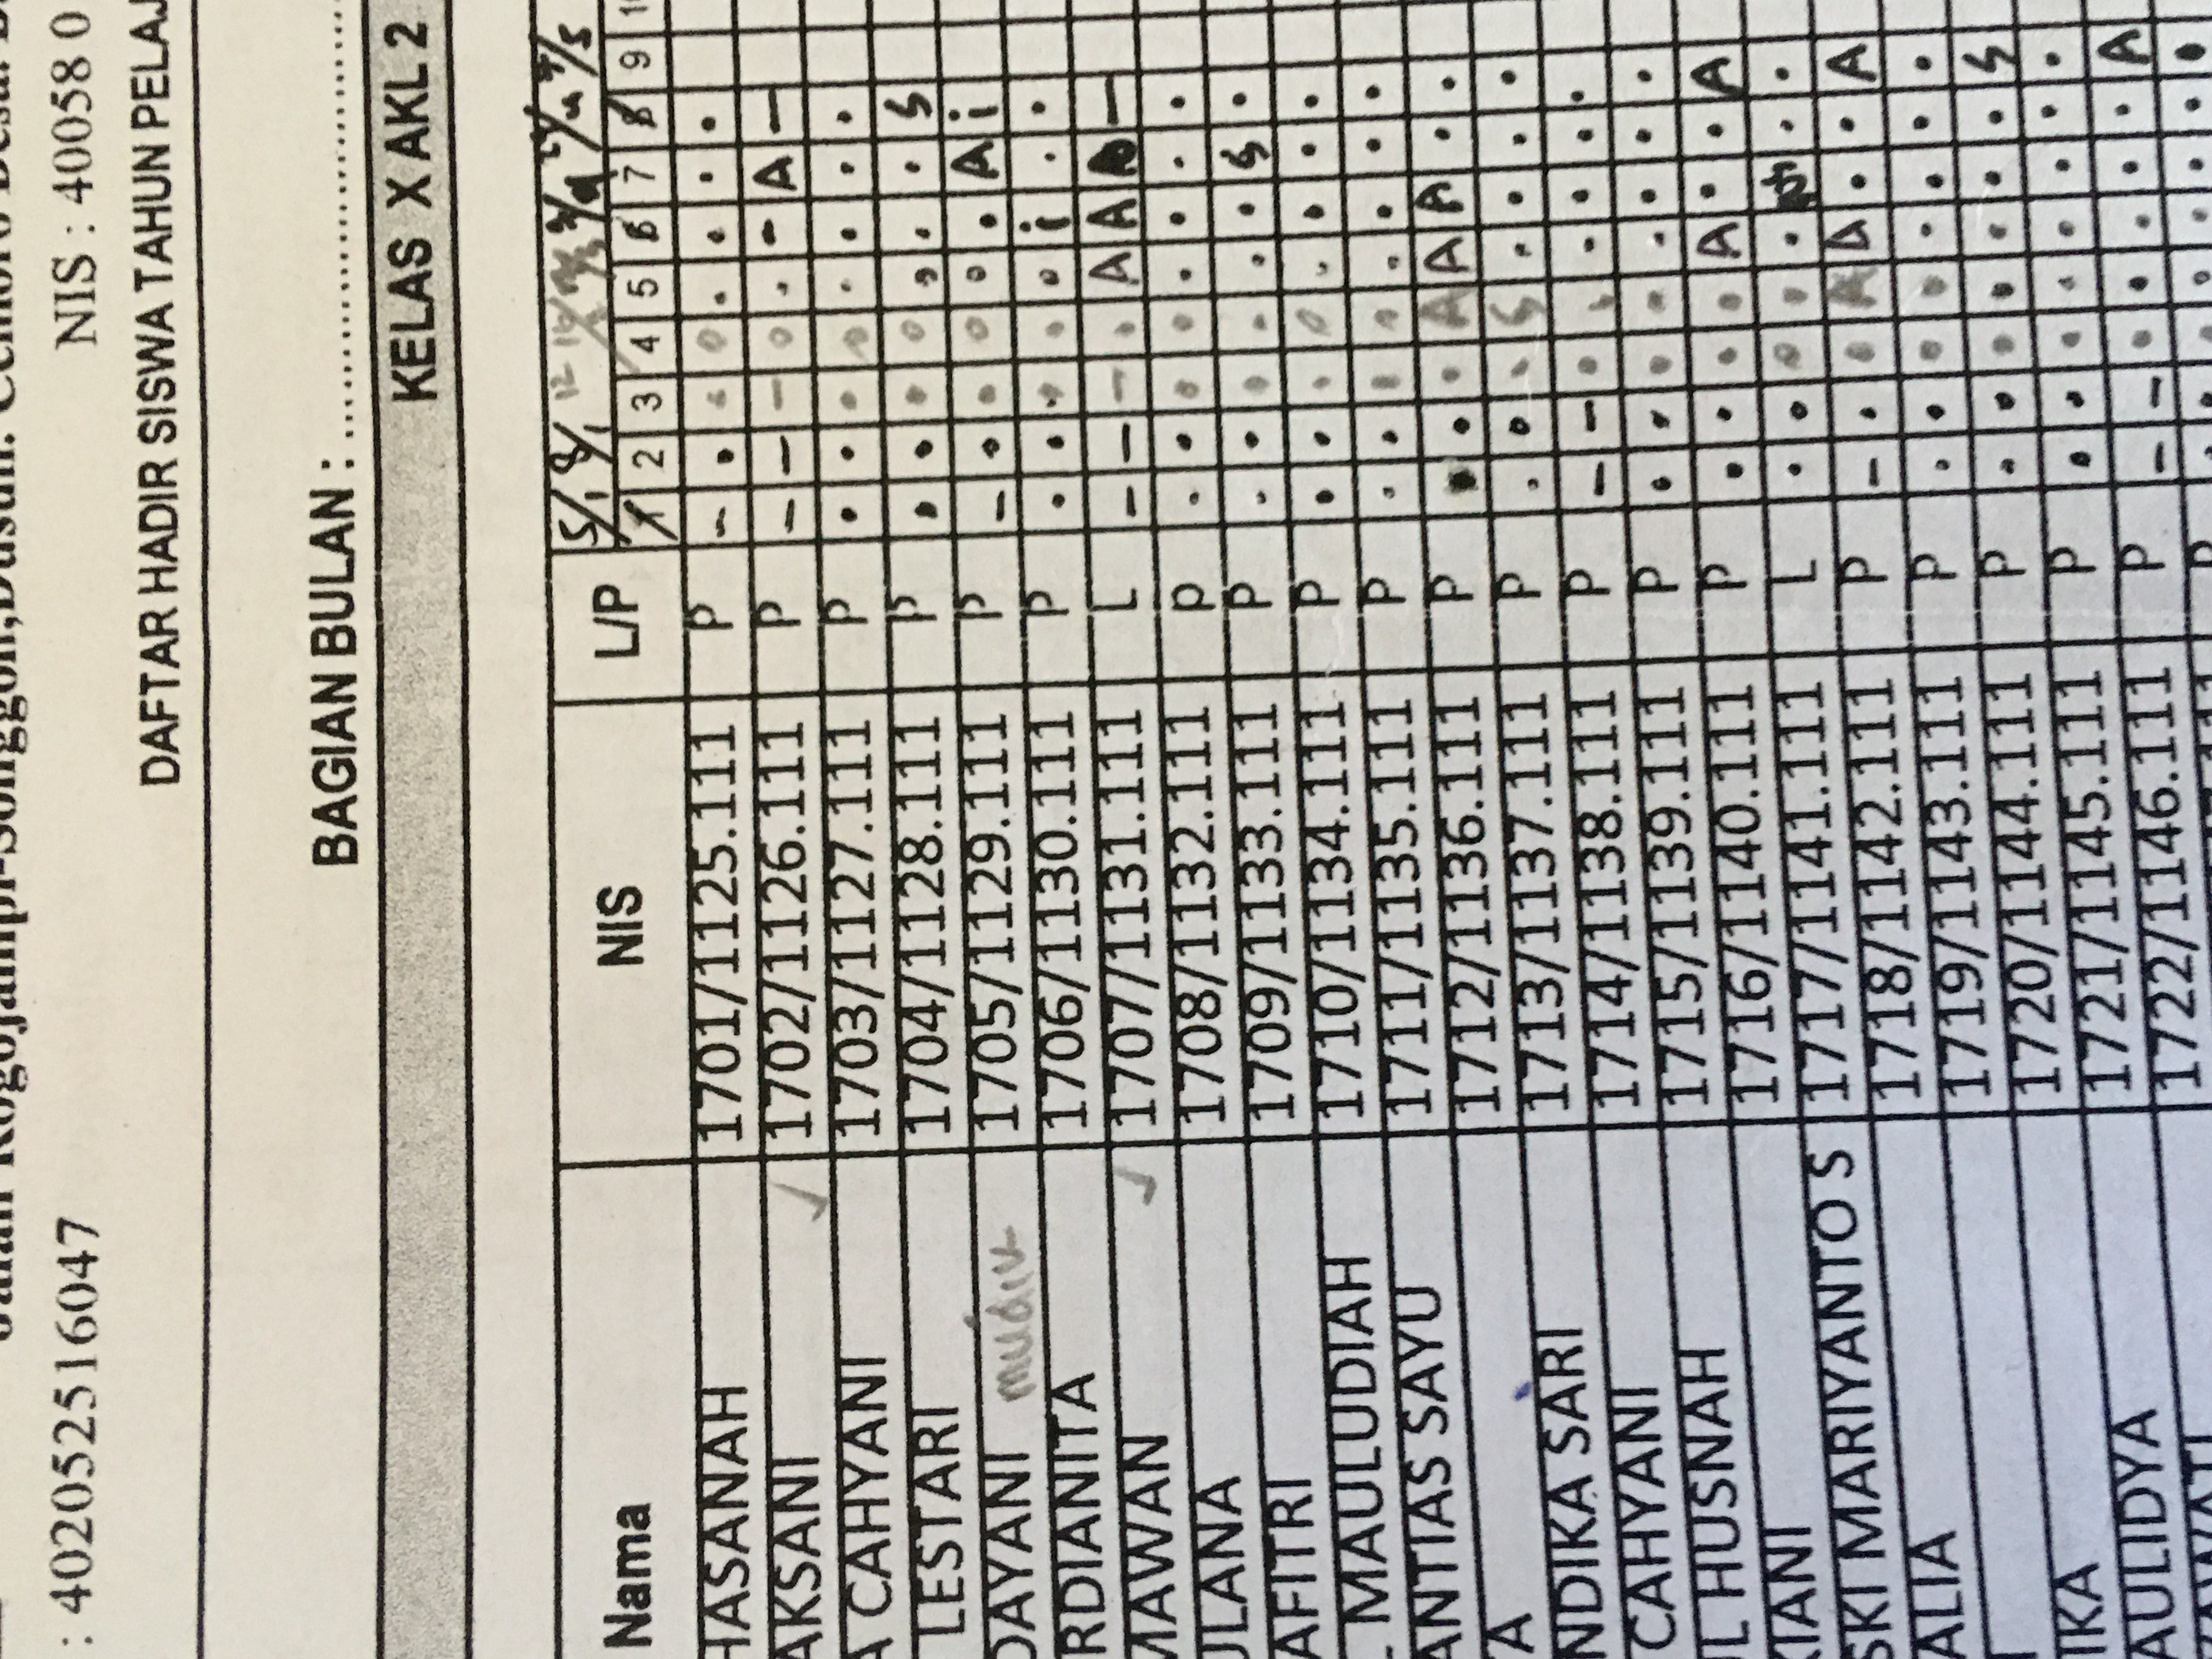 : 402052516047 NIS : 40058 0
DAFTAR HADIR SISWA TAHUN PELAJ
BAGIAN BULAN : ..............................
KELAS X AKL 2
Nama NIS L/P 5/1 8/1 12
1 2 3 4 5 6 7 8 9
HASANAH 1701/1125.111 P - . . . . . . .
AKSANI 1702/1126.111 P - - - . . - A -
A CAHYANI 1703/1127.111 P . . . . . . . .
LESTARI 1704/1128.111 P . . . . . . . S
DAYANI mudik 1705/1129.111 P - . . . . . A i
RDIANITA 1706/1130.111 P . . . . . i . .
MAWAN 1707/1131.111 L - - - . A A A -
ULANA 1708/1132.111 P . . . . . . . .
AFITRI 1709/1133.111 P . . . . . . S .
L MAULUDIAH 1710/1134.111 P . . . . . . . .
ANTIAS SAYU 1711/1135.111 P . . . . . . . .
A 1712/1136.111 P . . . A A A . .
NDIKA SARI 1713/1137.111 P . . . S . . . .
CAHYANI 1714/1138.111 P - - . . . . . .
UL HUSNAH 1715/1139.111 P . . . . . . . .
KIANI 1716/1140.111 P . . . . A . . A
SKI MARIYANTO S 1717/1141.111 L . . . . . . .
ALIA 1718/1142.111 P - . . A A . . A
1719/1143.111 P . . . . . . . .
IKA 1720/1144.111 P . . . . . . . S
AULIDYA 1721/1145.111 P . . . . . . . .
1722/1146.111 P - - . . . . . A